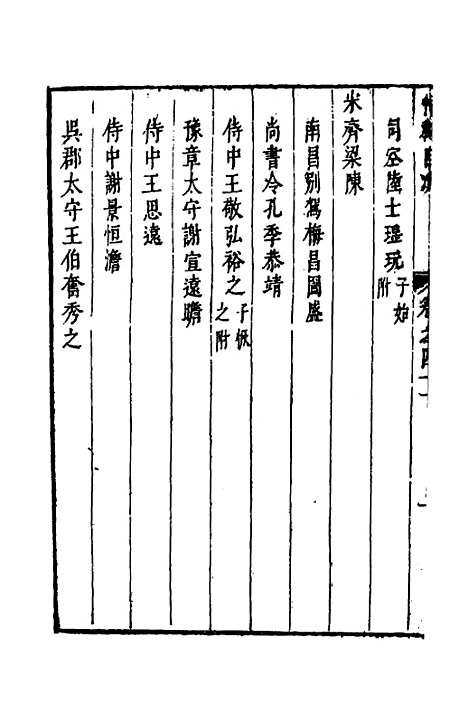 司空陸士瑶玩子始附
宋齊梁陳
南昌別駕梅昌國盛
尚書令孔季恭靖
侍中王敬弘裕之子恢之附
豫章太守謝宣遠瞻
侍中王思遠
侍中謝景恒澹
吳郡太守王伯奮秀之